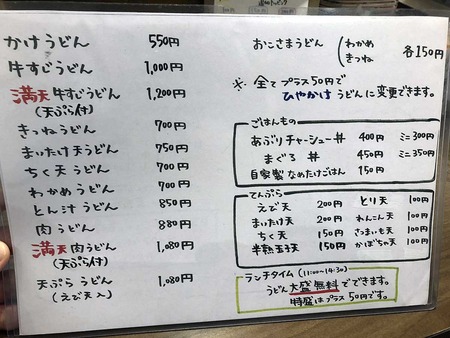 かけうどん 550円
牛すじうどん 1,000円
満天 牛すじうどん 1,200円
(天ぷら付)
きつねうどん 700円
まいたけ天うどん 750円
ちく天うどん 700円
わかめうどん 700円
とん汁うどん 850円
肉うどん 880円
満天 肉うどん 1,080円
(天ぷら付)
天ぷらうどん 1,080円
(えび天入)
おこさまうどん (わかめ きつね 各150円
※ 全てプラス50円で
ひやかけうどんに変更できます。
ごはんもの
あぶりチャーシュー丼 400円 ミニ300円
まぐろ丼 450円 ミニ350円
自家製なめたけごはん 150円
てんぷら
えび天 200円 とり天 100円
まいたけ天 200円 れんこん天 100円
ちく天 150円 さつまいも天 100円
半熟玉子天 150円 かぼちゃ天 100円
ランチタイム (11:00~14:30)
うどん大盛無料でできます。
特盛はプラス50円です。